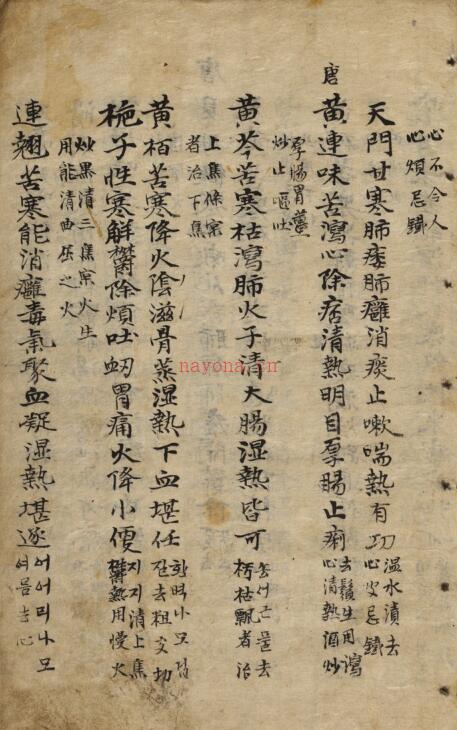 心不令人
心煩忌鐵
天門甘寒肺痿肺癰消痰止嗽喘熱有功
温水漬去
心皮忌鐵
唐
黃連味苦瀉心除痞清熱明目厚腸止痢
去鬚生用瀉
心清熱酒炒
厚腸胃薑
炒止嘔吐
黃芩苦寒枯瀉肺火子清大腸湿熱皆可
去
朽枯飄者治
上焦條實
者治下焦
黃栢苦寒降火陰滋骨蒸湿熱下血堪任
나모
去粗皮切
梔子性寒解鬱除煩吐衂胃痛火降小便
지지清上焦
鬱熱用慢火
炒黑清三焦實火生
用能清曲屈之火
連翹苦寒能消癰毒氣聚血凝湿熱堪逐
어어리나모
여름去心
nayona.cn